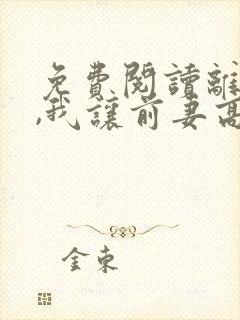 免費閱讀離
,我讓前妻高
金束